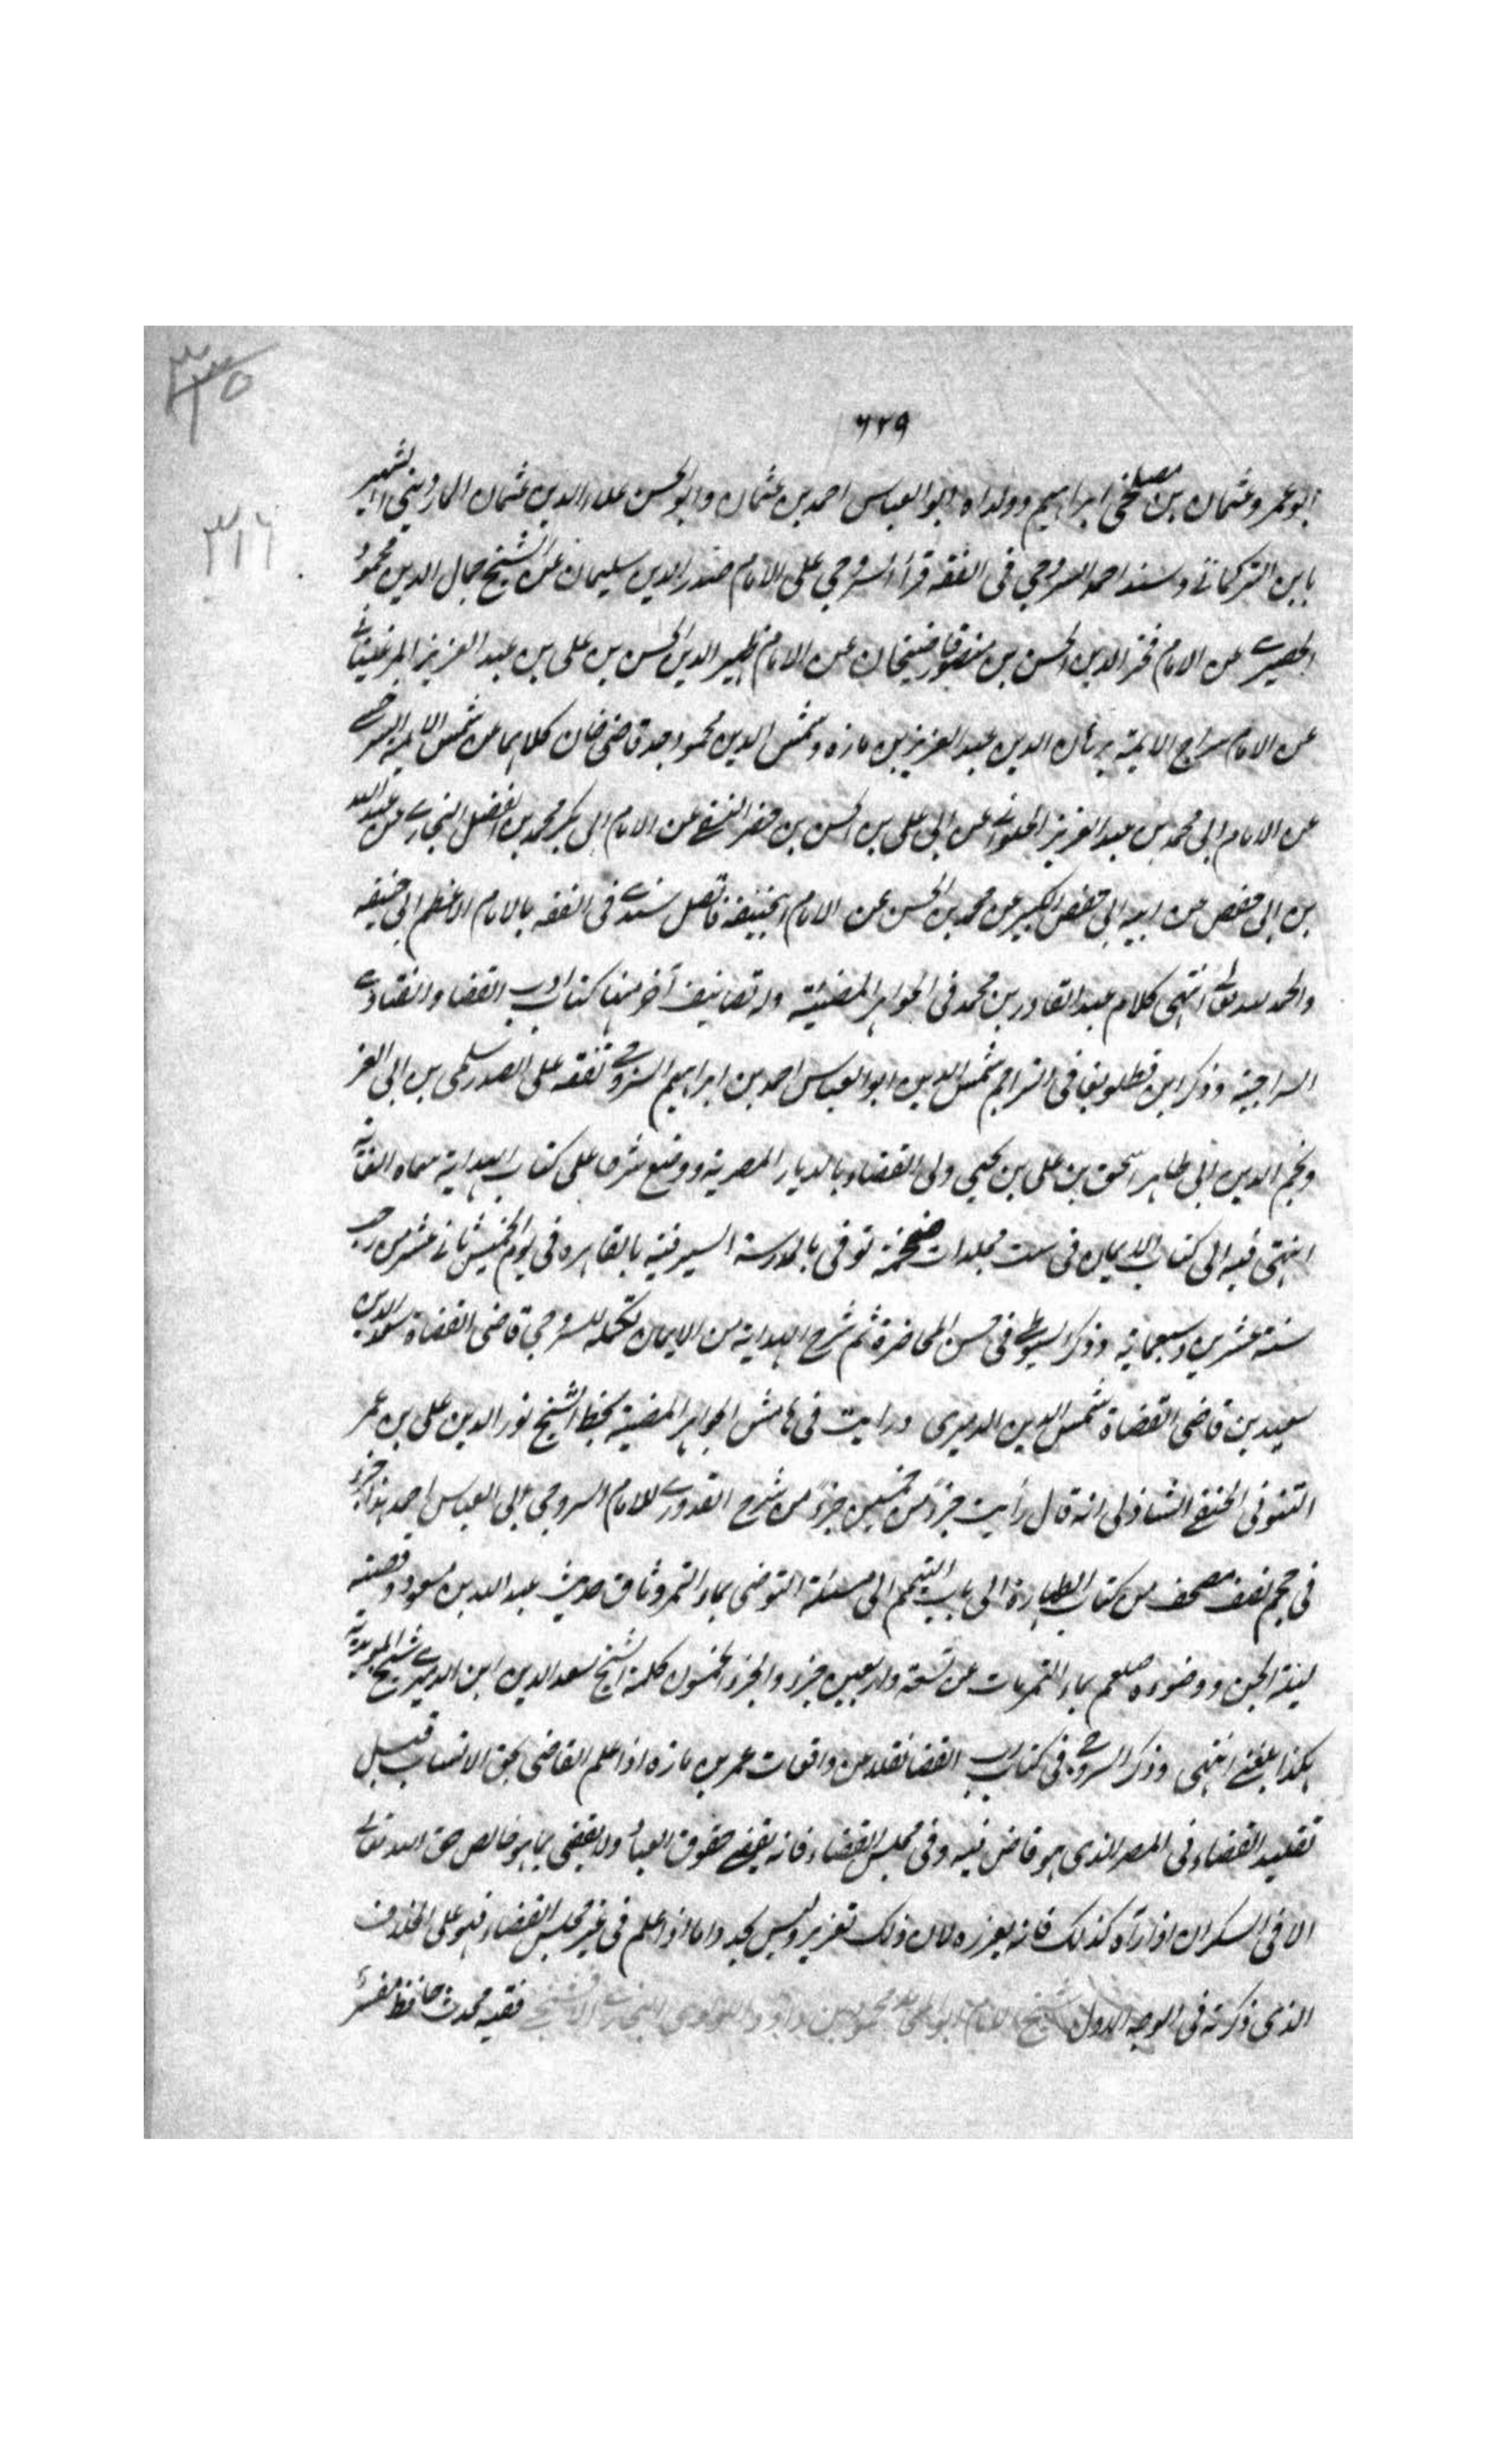 ٦٢٩
٣١٦
ابو عمرو عثمان بن مصطفى ابراهيم وولداه ابو العباس احمد بن عثمان وابو الحسن علاء الدين عثمان الماردينى الشهير
بابن التركمانے وسند احمد السروجي فى الفقه قرأ السروجي على الامام صدر الدين سليمان عن الشيخ جمال الدين محمود
الحصيرے عن الامام فخر الدين الحسن بن منصور قاضيخان عن الامام ظهير الدين الحسن بن على بن عبد العزيز المرغينانے
عن الامام سراج الايمة برهان الدين عبد العزيز بن مازه وشمس الدين محمود جد قاضى خان كلاهما عن شمس الائمة السرخسے
عن الامام ابى محمد بن عبد العزيز الحلوانے عن ابى على بن الحسن بن خضر النسفے عن الامام ابى بكر محمد بن الفضل البخارے عن عبد الله
بن ابى حفص عن ابيه ابى حفص الكبير عن محمد بن الحسن عن الامام ابيحنيفة فاتصل سندے فى الفقه بالامام الاعظم ابى حنيفه
والحمد لله تعالے انتهى كلام عبد القادر بن محمد فى الجواهر المضيئة وله تصانيف أخر منها كتاب ادب القضا والفتاوے
السراجية وذكر ابن قطلوبغا فى التراجم شمس الدين ابو العباس احمد بن ابراهيم السروجے تفقه على الصدر سلمى بن ابى العز
ونجم الدين ابى طاهر اسحق بن على بن يحيى ولى القضاء بالديار المصرية ووضع شرحا على كتاب الهداية سماه الغاية
انتهى فيه الى كتاب الايمان فى ست مجلدات ضخمة توفى بالمدرسة السيرفية بالقاهره فى يوم الخميس ثانے عشر من رجب
سنة عشرين وسبعماية وذكر السيوطے فى حسن المحاضرة ثم شرح الهداية من الايمان تكمله للسروجى قاضى القضاة سعد الدين
سعيد بن قاضى القضاة شمس الدين الديرى ورايت فى هامش الجواهر المضية بخط الشيخ نور الدين على بن عمر
التنوفى الحنفے الشاذلى انه قال رأيت جزءً من خمسين جزءً من شرح القدورے للامام السروجى ابى العباس احمد هذا الجزء
فى حجم نصف مصحف من كتاب الطهارة الى باب التيمم الى مسئلة التوضى بماء التمر وساق حديث عبد الله بن مسعود وقصته
ليلة الجن ووضوءه صلعم بماء التمر مات عن تسعة واربعين جزء والجزء الخمسون كلمة الشيخ سعد الدين ابن الديرے شيخ المويديه
هكذا بلغنے انتهى وذكر السروجے فى كتاب ادب القضا نقلا عن واقعات عمر بن مازه اذا علم القاضى بحق الانسان قبل
تقليد القضاء فى المصر الذى هو قاض فيه وفى مجلس القضاء فانه يقضے حقوق العباد ولا يقضى بما هو خالص حق الله تعالے
الا فى السكران اذا رآه كذلك فانه يعزره لان ذلك تعزير وليس بحد واما اذا علم فى غير مجلس القضاء فهو على الخلاف
الذى ذكرته فى الوجه الاول شيخ الامام ابو المحامد محمود بن داود اللؤلؤى البخارے الافشنجے فقيه محدث حافظ مفسر